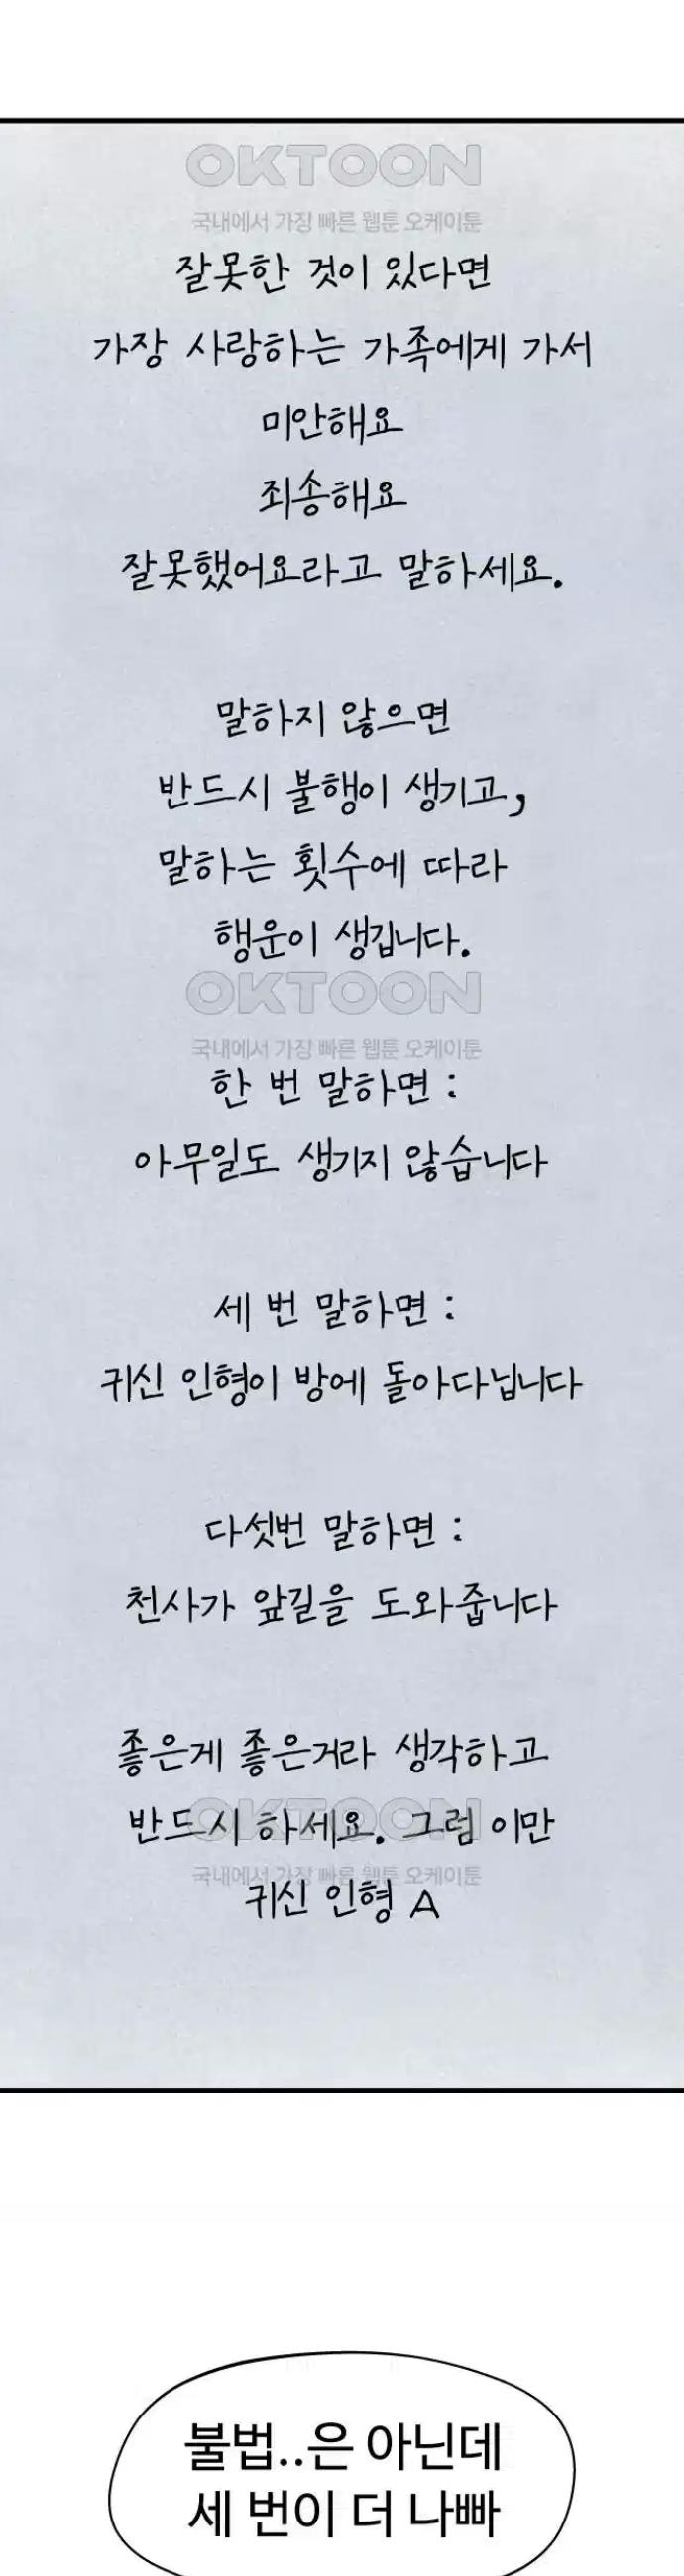 OKTOON
국내에서 가장 빠른 웹툰 오케이툰
잘못한 것이 있다면
가장 사랑하는 가족에게 가서
미안해요
죄송해요
잘못했어요라고 말하세요.
말하지 않으면
반드시 불행이 생기고,
말하는 횟수에 따라
행운이 생깁니다.
OKTOON
국내에서 가장 빠른 웹툰 오케이툰
한 번 말하면 :
아무일도 생기지 않습니다
세 번 말하면 :
귀신 인형이 방에 돌아다닙니다
다섯번 말하면 :
천사가 앞길을 도와줍니다
좋은게 좋은거라 생각하고
OKTOON
반드시 하세요. 그럼 이만
국내에서 가장 빠른 웹툰 오케이툰
귀신 인형 A
불법..은 아닌데
세 번이 더 나빠